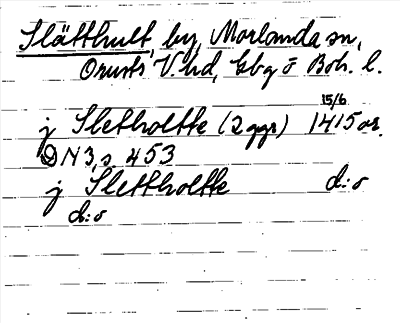 Slätthult, by, Morlanda sn,
Orusts V. hd, Gbg o Boh. l.
j Slethholtte (2 ggr) 15/6 1415 or.
DN 3, s. 453
j Slettholtte d:o
d:o